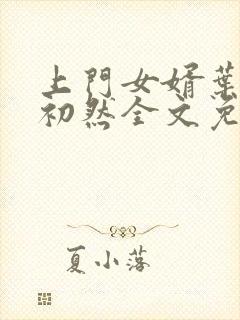 上門女婿葉
初然全文免
夏小落